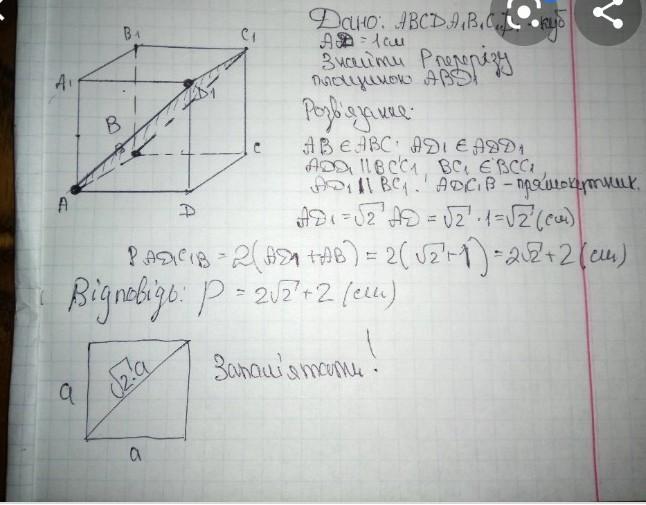 Дано: ABCDA₁B₁C₁D₁ - куб
AD = 1 см
Знайти P перерізу
площиною ABD₁
Розв'язання:
AB ∈ ABC. AD₁ ∈ ADD₁
ADD₁ || BCC₁ BC₁ ∈ BCC₁
AD₁ || BC₁. AD₁C₁B – прямокутник.
AD₁ = √2 AD = √2 · 1 = √2 (см)
P AD₁C₁B = 2(AD₁ + AB) = 2(√2 + 1) = 2√2 + 2 (см)
Відповідь: P = 2√2 + 2 (см)
B₁
C₁
A₁
D₁
B
C
A
D
√2 a
Запам'ятати!
a
a